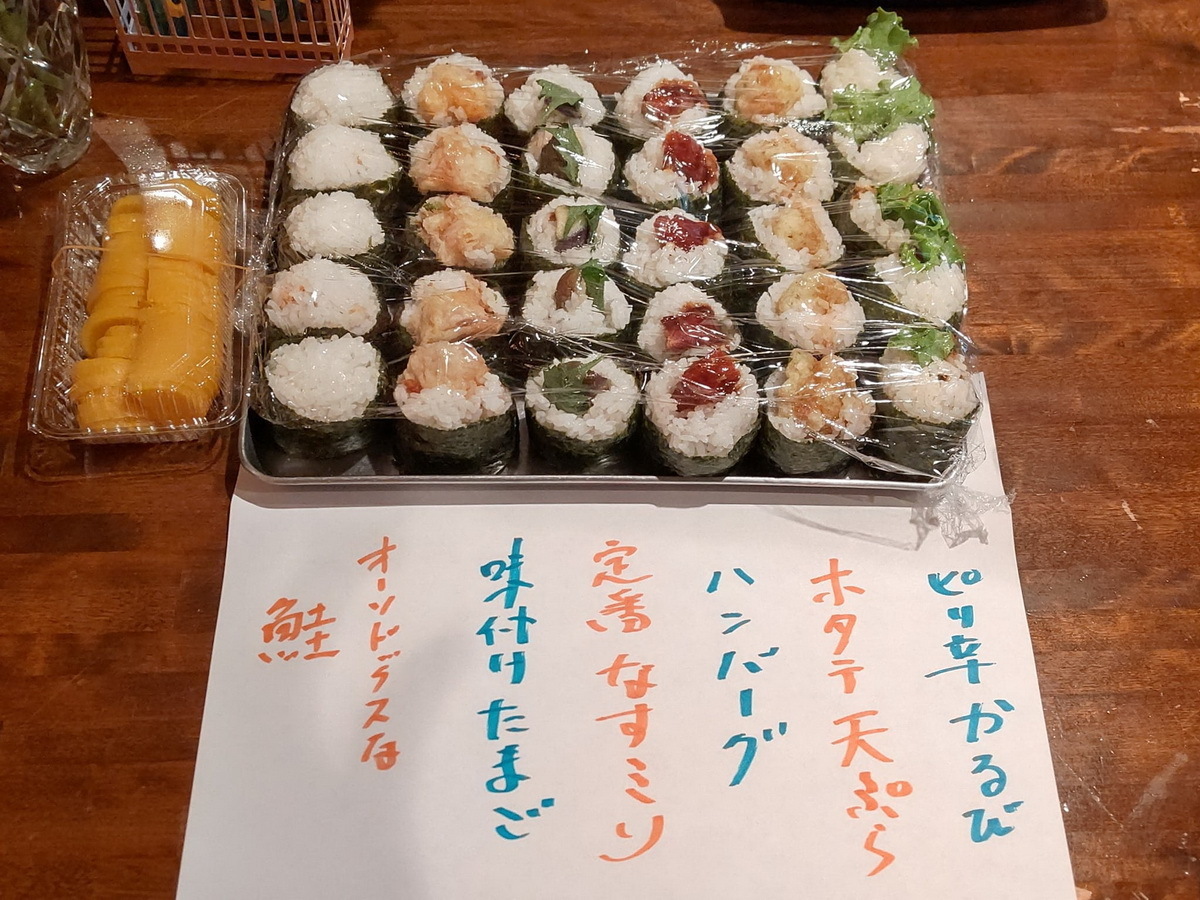 ピリ辛かるび
ホタテ天ぷら
ハンバーグ
定番なすミソ
味付けたまご
オーソドックスな
鮭